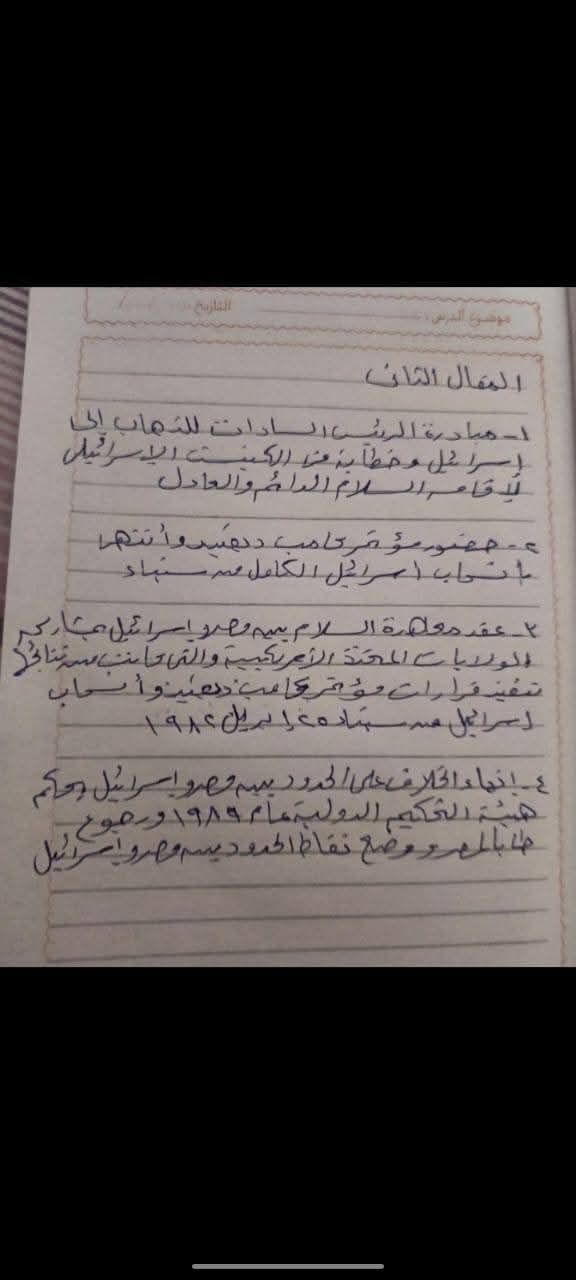 موضوع الدرس : التاريخ
المقال الثانى
١- مبادرة الرئيس السادات للذهاب إلى
إسرائيل وخطابة فى الكنيست الاسرائيلى
لإقامه السلام الدائم والعادل
٢- حضور مؤتمر كامب ديفيد وأنتهى
بأنسحاب اسرائيل الكامل من سيناء
٣- عقد معاهدة السلام بين مصر واسرائيل بمشاركه
الولايات المتحدة الأمريكيية والتى كانت من نتائجها
تنفيذ قرارات مؤتمر كامب ديفيد وأنسحاب
اسرائيل من سيناء ٢٥ إبريل ١٩٨٢
٤- إنهاء الخلاف على الحدود بين مصر واسرائيل بحكم
هيئة التحكيم الدولية عام ١٩٨٩ ورجوع
طابا لمصر ووضع نقاط الحدود بين مصر واسرائيل